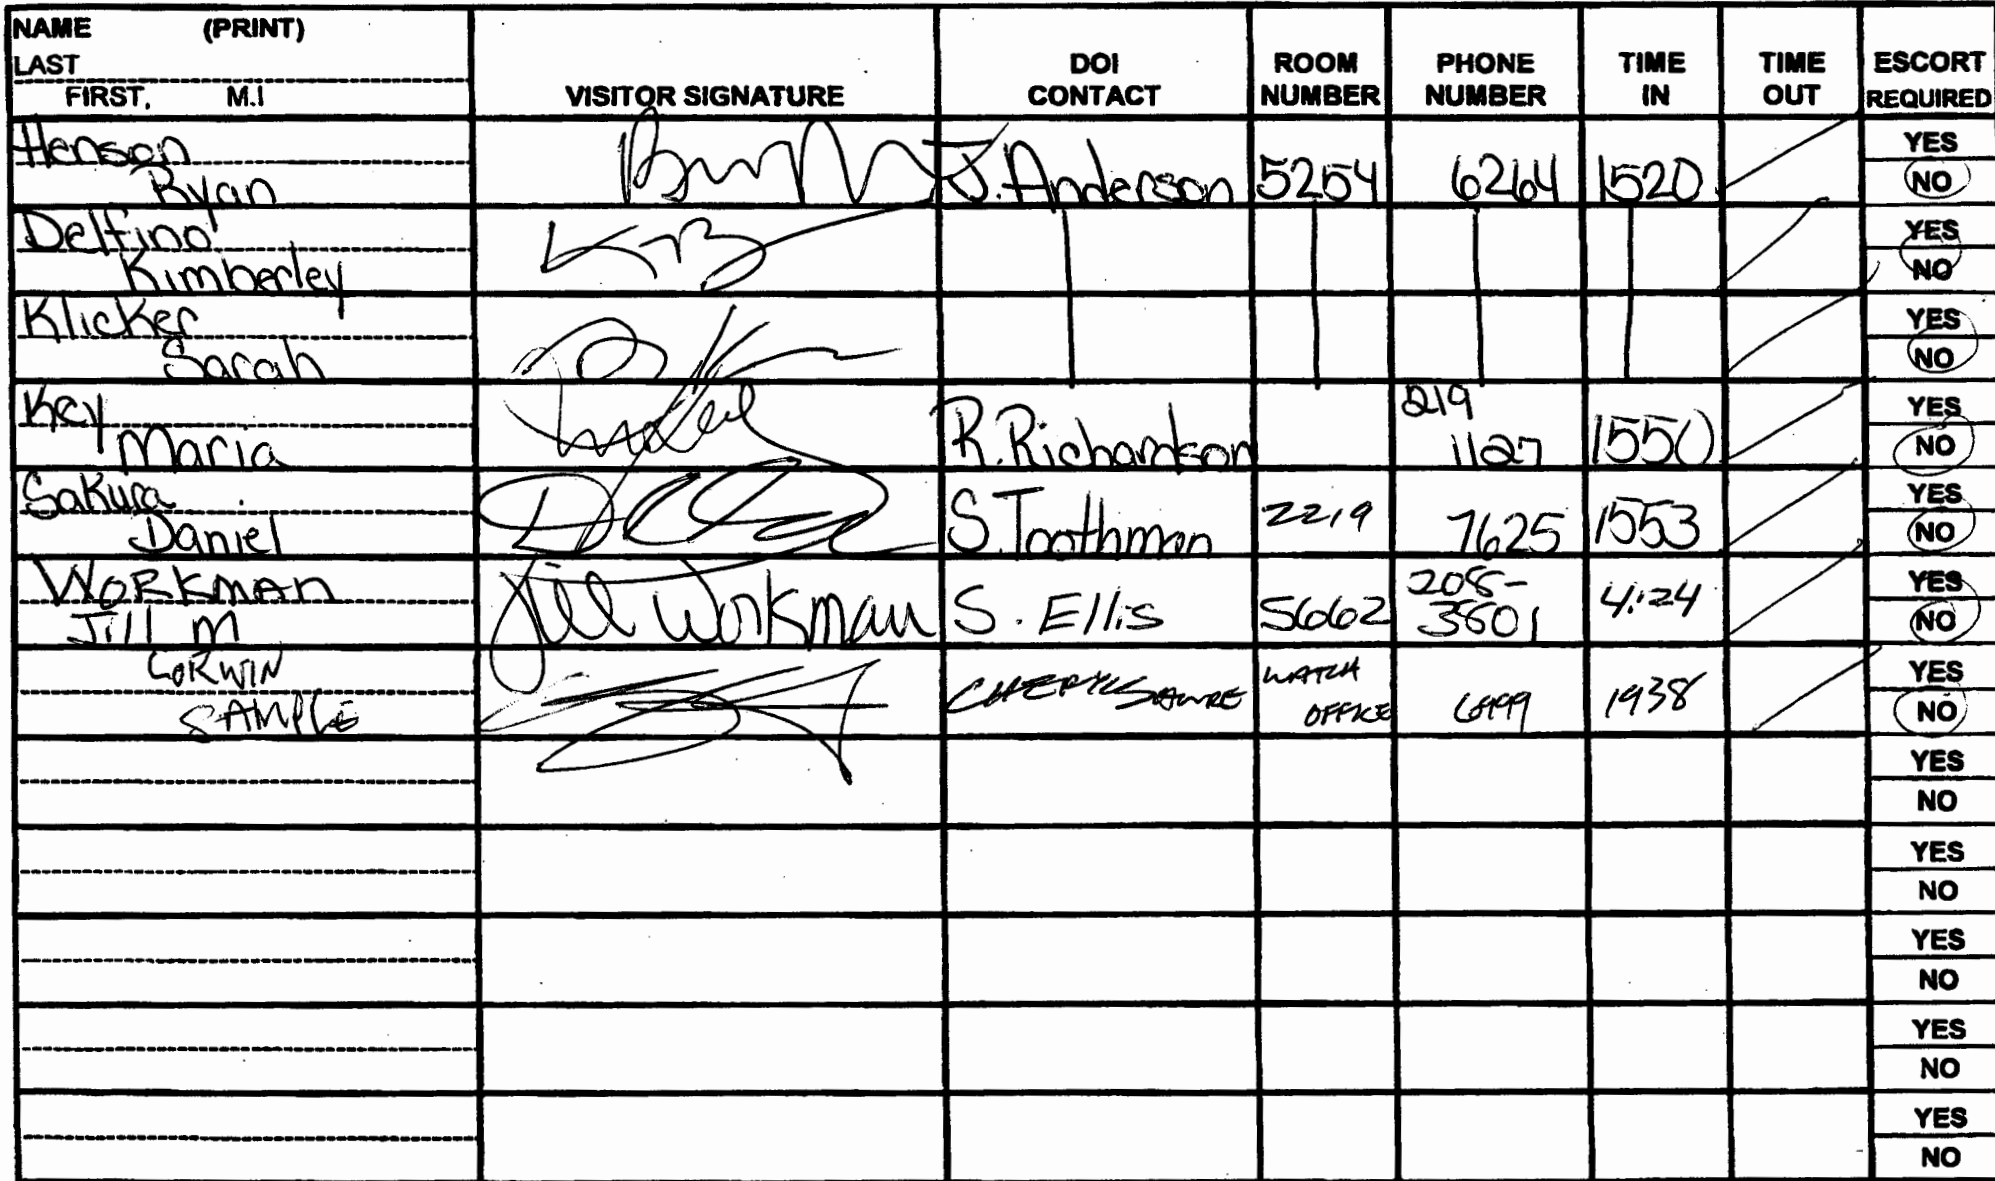 NAME (PRINT)
LAST
FIRST, M.I
VISITOR SIGNATURE
DOI
CONTACT
ROOM
NUMBER
PHONE
NUMBER
TIME
IN
TIME
OUT
ESCORT
REQUIRED
Henson
Ryan
J. Anderson 5254 6264 1520
YES
NO
Delfino
Kimberley
YES
NO
Klicker
Sarah
YES
NO
Key
Maria
R. Richardson
219
1127
1550
YES
NO
Sakura
Daniel
S. Toothman 2219 7625 1553
YES
NO
WORKMAN
Jill M
Jill Workman
S. Ellis 5662
208-
3801
4:24
YES
NO
CORWIN
SAMPLE
CHERYL
WATCH
OFFICE
1938
YES
NO
YES
NO
YES
NO
YES
NO
YES
NO
YES
NO